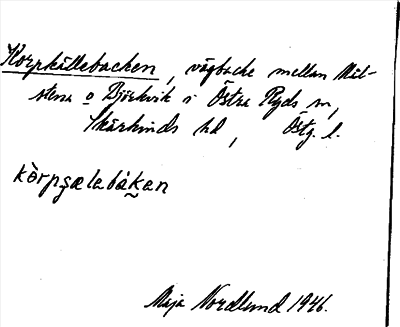 Korpkällebacken, vägbacke mellan Mil-
stena o Björkvik i Östra Ryds sn,
Skärkinds hd, Östg. l.
kòrpşælebákan
Maja Nordlund 1946.